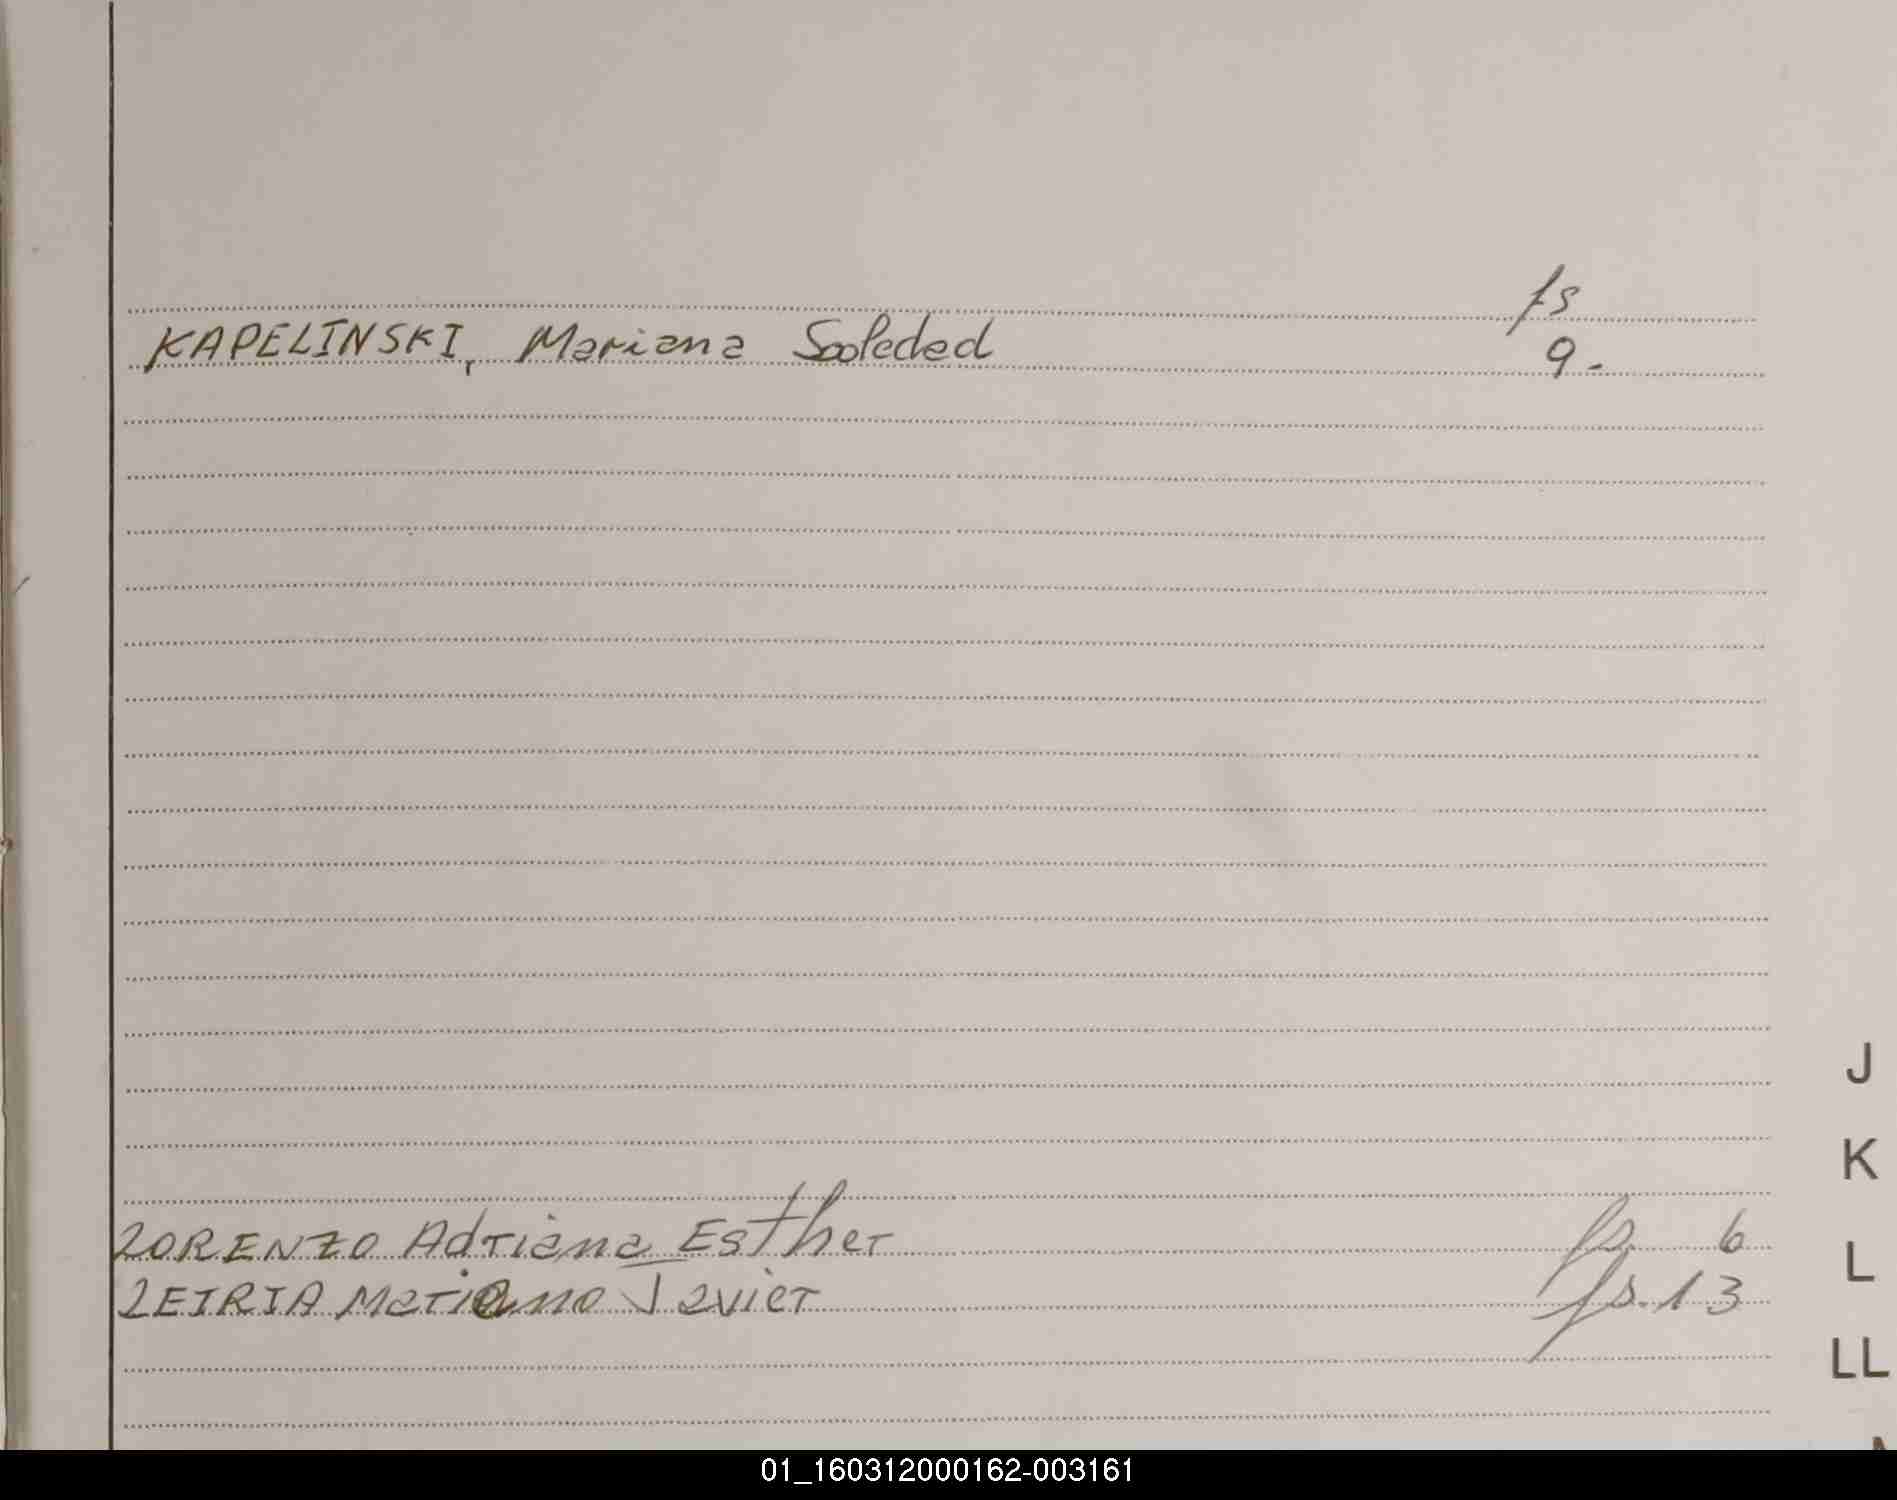 fs
KAPELINSKI, Mariana Sooledad 9.
J
K
LORENZO Adriana Esther fs. 6
L
LEIRIA Mariano Javier fs. 13
LL
01_160312000162-003161